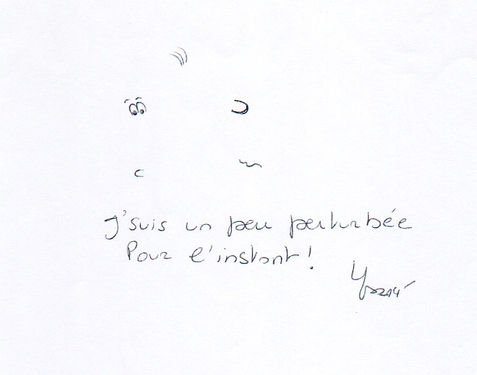 J'suis un peu perturbée
Pour l'instant !